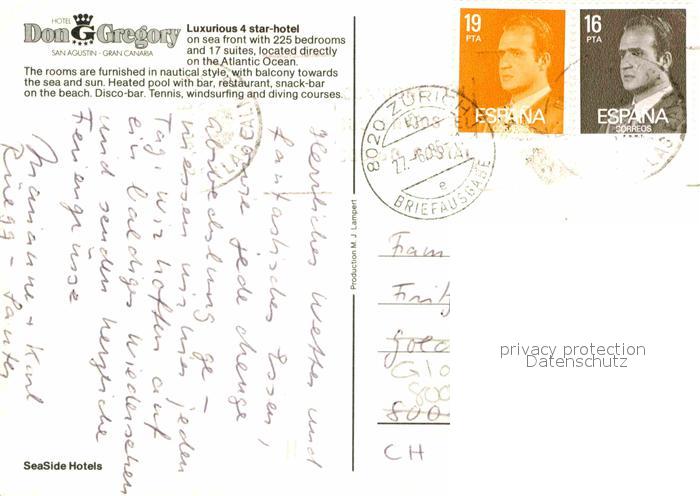 HOTEL
Don Gregory
SAN AGUSTIN - GRAN CANARIA
Luxurious 4 star-hotel
on sea front with 225 bedrooms
and 17 suites, located directly
on the Atlantic Ocean.
The rooms are furnished in nautical style, with balcony towards
the sea and sun. Heated pool with bar, restaurant, snack-bar
on the beach. Disco-bar. Tennis, windsurfing and diving courses.
Herrliches Wetter und
fantastisches Essen,
jede Menge
Abwechslung ge-
niessen wir hier jeden
Tag. Wir hoffen auf
ein baldiges Wiedersehen
und senden herzliche
Feriengrüsse
Marianne + Karl
Rüegg - Sauter
SeaSide Hotels
Production M. J. Lampert
19
PTA
ESPAÑA
CORREOS
16
PTA
ESPAÑA
CORREOS
F.N.M.T.
8020 ZÜRICH
e
BRIEFAUSGABE
Fam
Frit
800
800
CH
privacy protection
Datenschutz